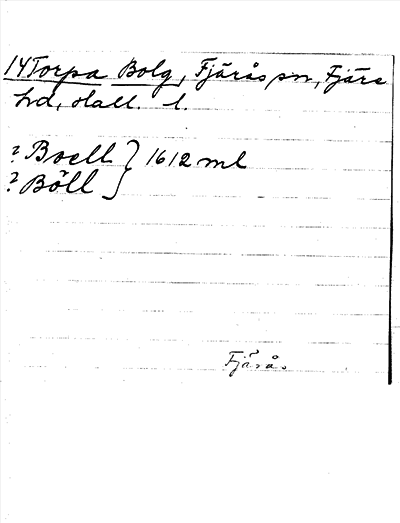 14 Torpa Bolg, Fjärås sn, Fjäre
hd, Hall. l.
? Boell } 1612 ml
? Böll
Fjärås.